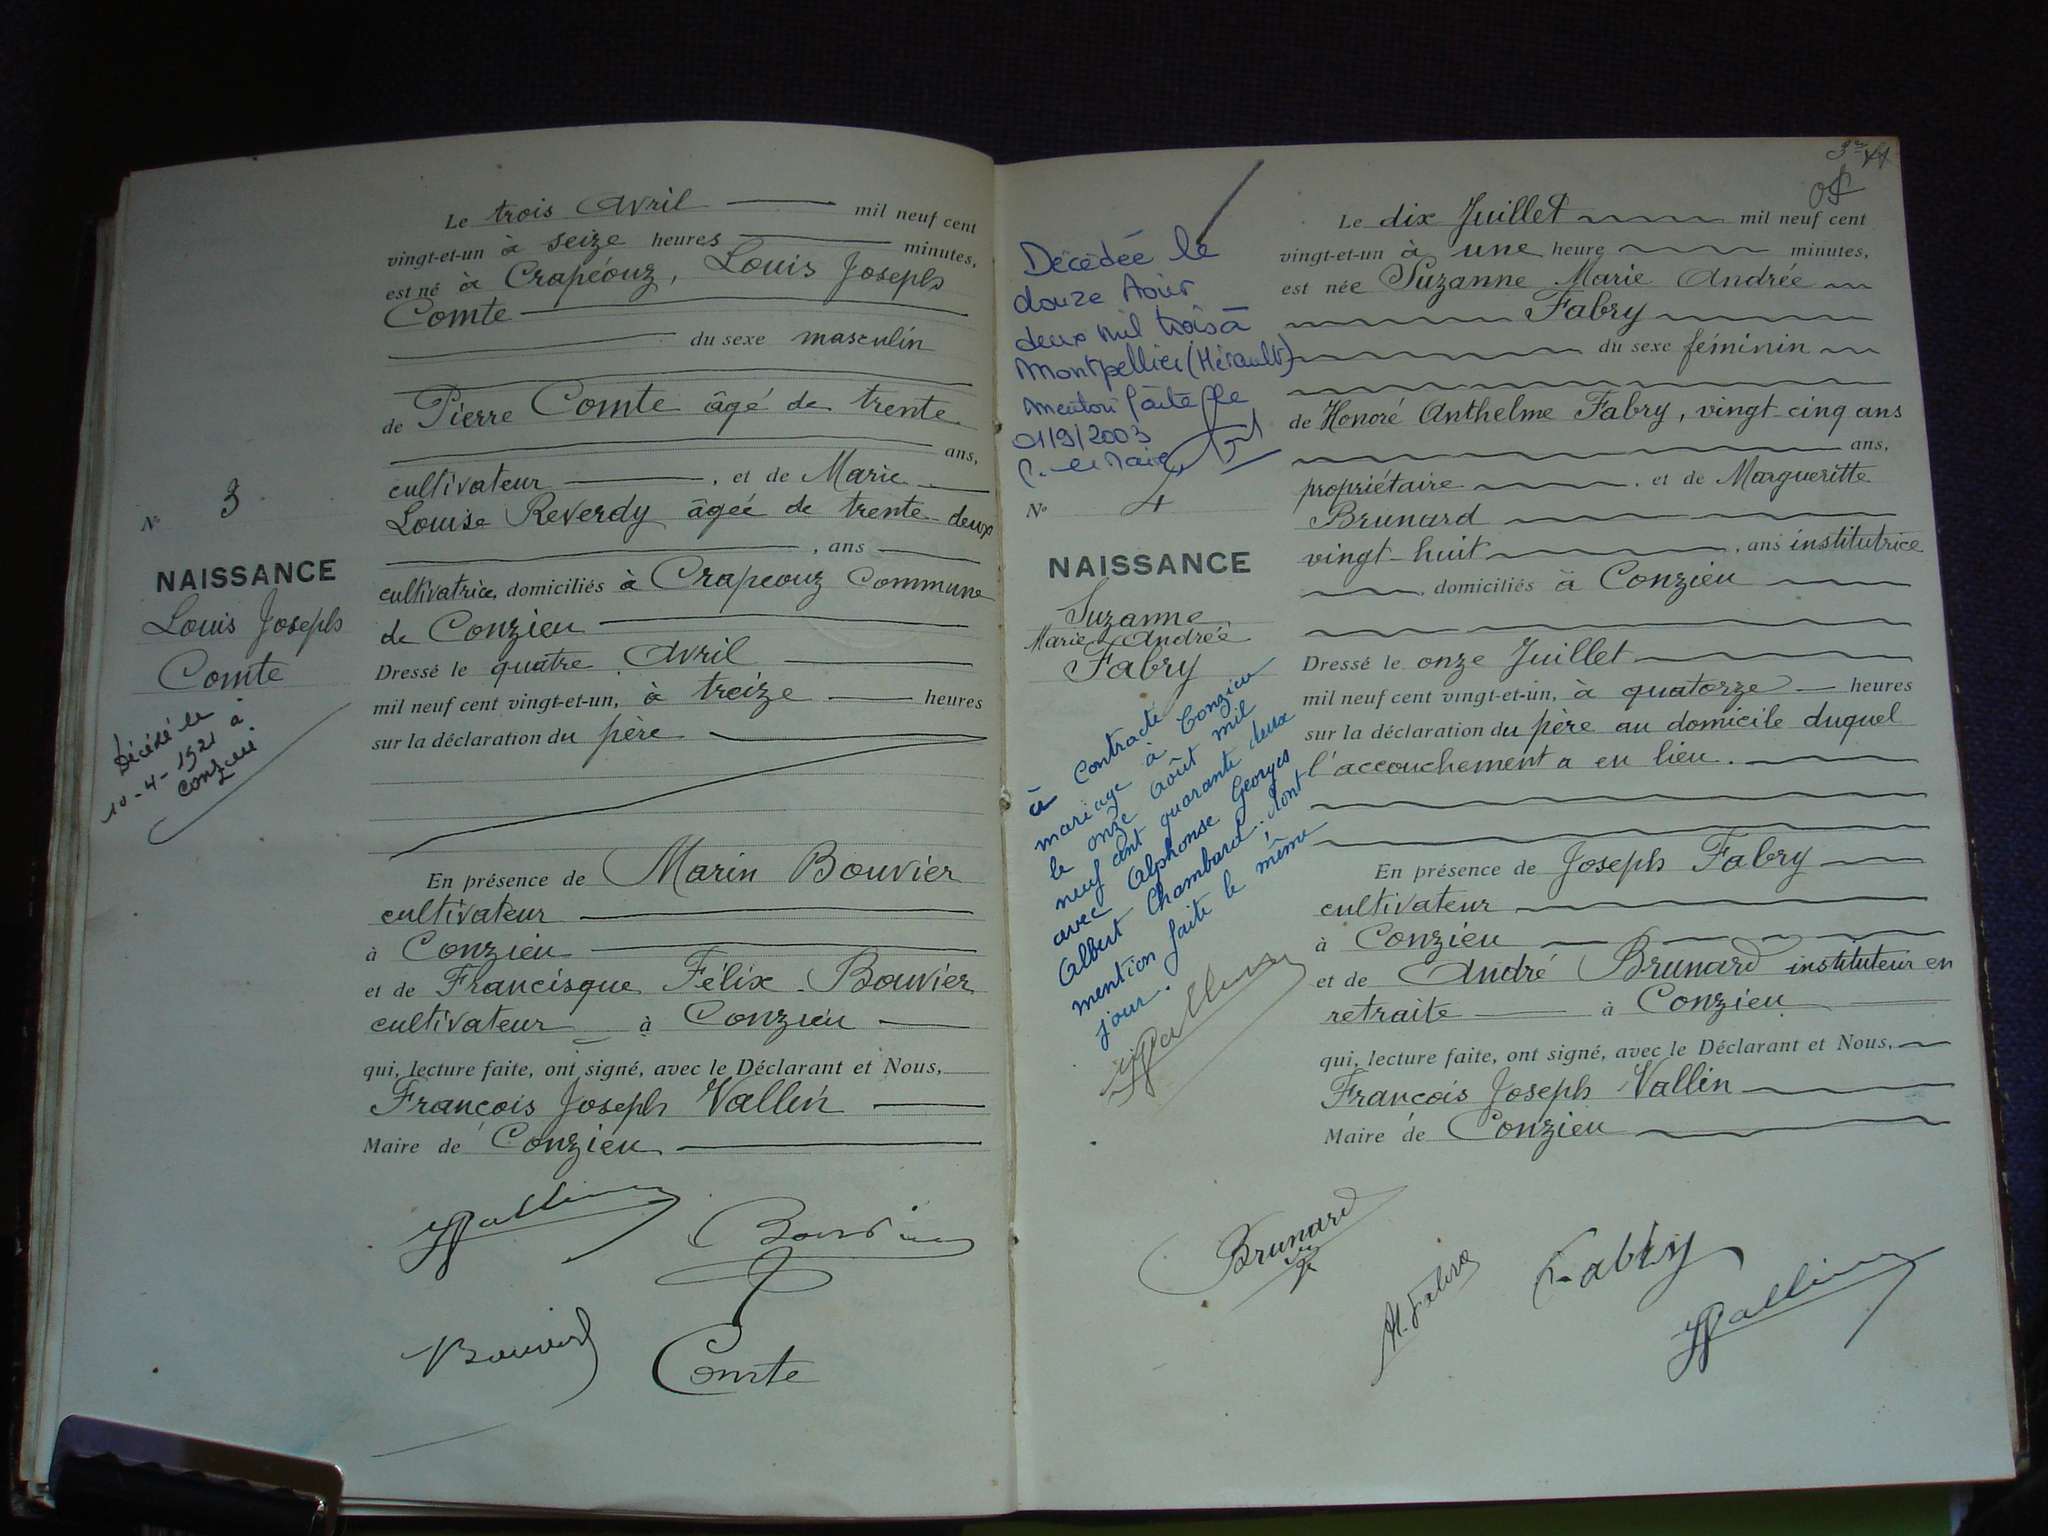 Le trois Avril mil neuf cent
vingt-et-un à seize heures minutes,
est né à Crapéouz, Louis Joseph
Comte
du sexe masculin
de Pierre Comte âgé de trente
ans,
cultivateur, et de Marie
Louise Reverdy âgée de trente-deux
, ans
cultivatrice, domiciliés à Crapeouz Commune
de Conzieu
Dressé le quatre Avril
mil neuf cent vingt-et-un, à treize heures
sur la déclaration du père
En présence de Marin Bouvier
cultivateur
à Conzieu
et de Francisque Félix Bouvier
cultivateur à Conzieu
qui, lecture faite, ont signé, avec le Déclarant et Nous,
François Joseph Vallin
Maire de Conzieu
Comte
N° 3
NAISSANCE
Louis Joseph
Comte
Décédé le
10-4-1921 à
Conzieu
Décédée le
douze Août
deux mil trois à
Montpellier (Hérault)
mention faite le
01/9/2003
N° 4
NAISSANCE
Suzanne
Marie Andrée
Fabry
a contracté
mariage à Conzieu
le onze août mil
neuf cent quarante deux
avec Alphonse Georges
Albert Chambard. dont
mention faite le même
jour.
Le dix Juillet mil neuf cent
vingt-et-un à une heure minutes,
est née Suzanne Marie Andrée
Fabry
du sexe féminin
de Honoré Anthelme Fabry, vingt-cinq ans
ans,
propriétaire, et de Margueritte
Brunard
vingt-huit, ans institutrice
domiciliés à Conzieu
Dressé le onze Juillet
mil neuf cent vingt-et-un, à quatorze heures
sur la déclaration du père au domicile duquel
l'accouchement a eu lieu.
En présence de Joseph Fabry
cultivateur
à Conzieu
et de André Brunard instituteur en
retraite à Conzieu
qui, lecture faite, ont signé, avec le Déclarant et Nous,
François Joseph Vallin
Maire de Conzieu
Brunard
Fabry